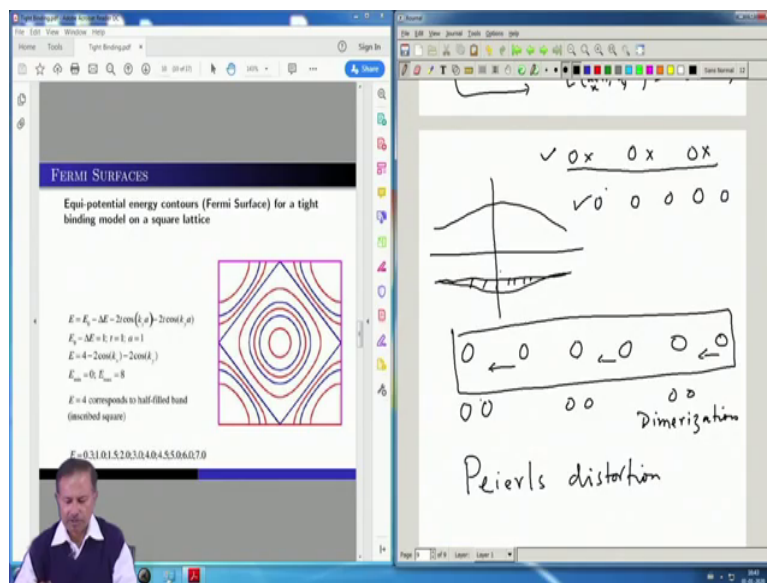 Tight Binding.pdf - Adobe Acrobat Reader DC
File Edit View Window Help
Home Tools Tight Binding.pdf × Sign In
Share
FERMI SURFACES
Equi-potential energy contours (Fermi Surface) for a tight
binding model on a square lattice
E = E₀ − ΔE − 2t cos(kₓa) − 2t cos(kᵧa)
E₀ − ΔE = 1; t = 1; a = 1
E = 4 − 2cos(kₓ) − 2cos(kᵧ)
Eₘᵢₙ = 0; Eₘₐₓ = 8
E = 4 corresponds to half-filled band
(inscribed square)
E = 0.3;1.0;1.5;2.0;3.0;4.0;4.5;5.0;6.0;7.0
File Edit View Journal Tools Options Help
Sans Normal 12
✓ 0x 0x 0x
✓ 0 0 0 0 0
0 0 0 0 0 0
00 00 00
Dimerization
Peierls distortion
Page 9 of 9 Layer: Layer 1